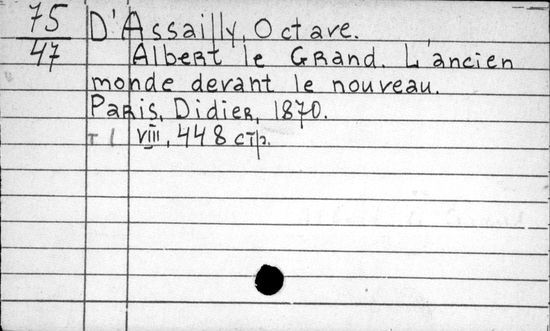 75 D'Assailly, Octave.
47 Albert le Grand. L'ancien
monde devant le nouveau.
Paris, Didier, 1870.
т 1 VIII, 448 стр.